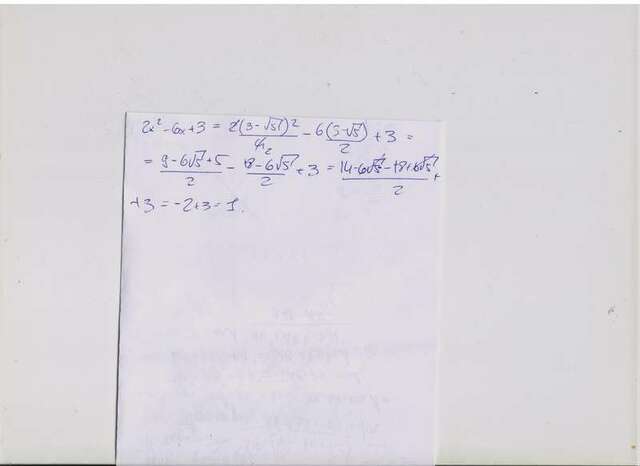 2x² - 6x + 3 = 2(3-√5)²/4₂ - 6(3-√5)/2 + 3 =
= 9-6√5+5/2 - 18-6√5/2 + 3 = 14-6√5-18+6√5/2 +
+3 = -2+3 = 1.